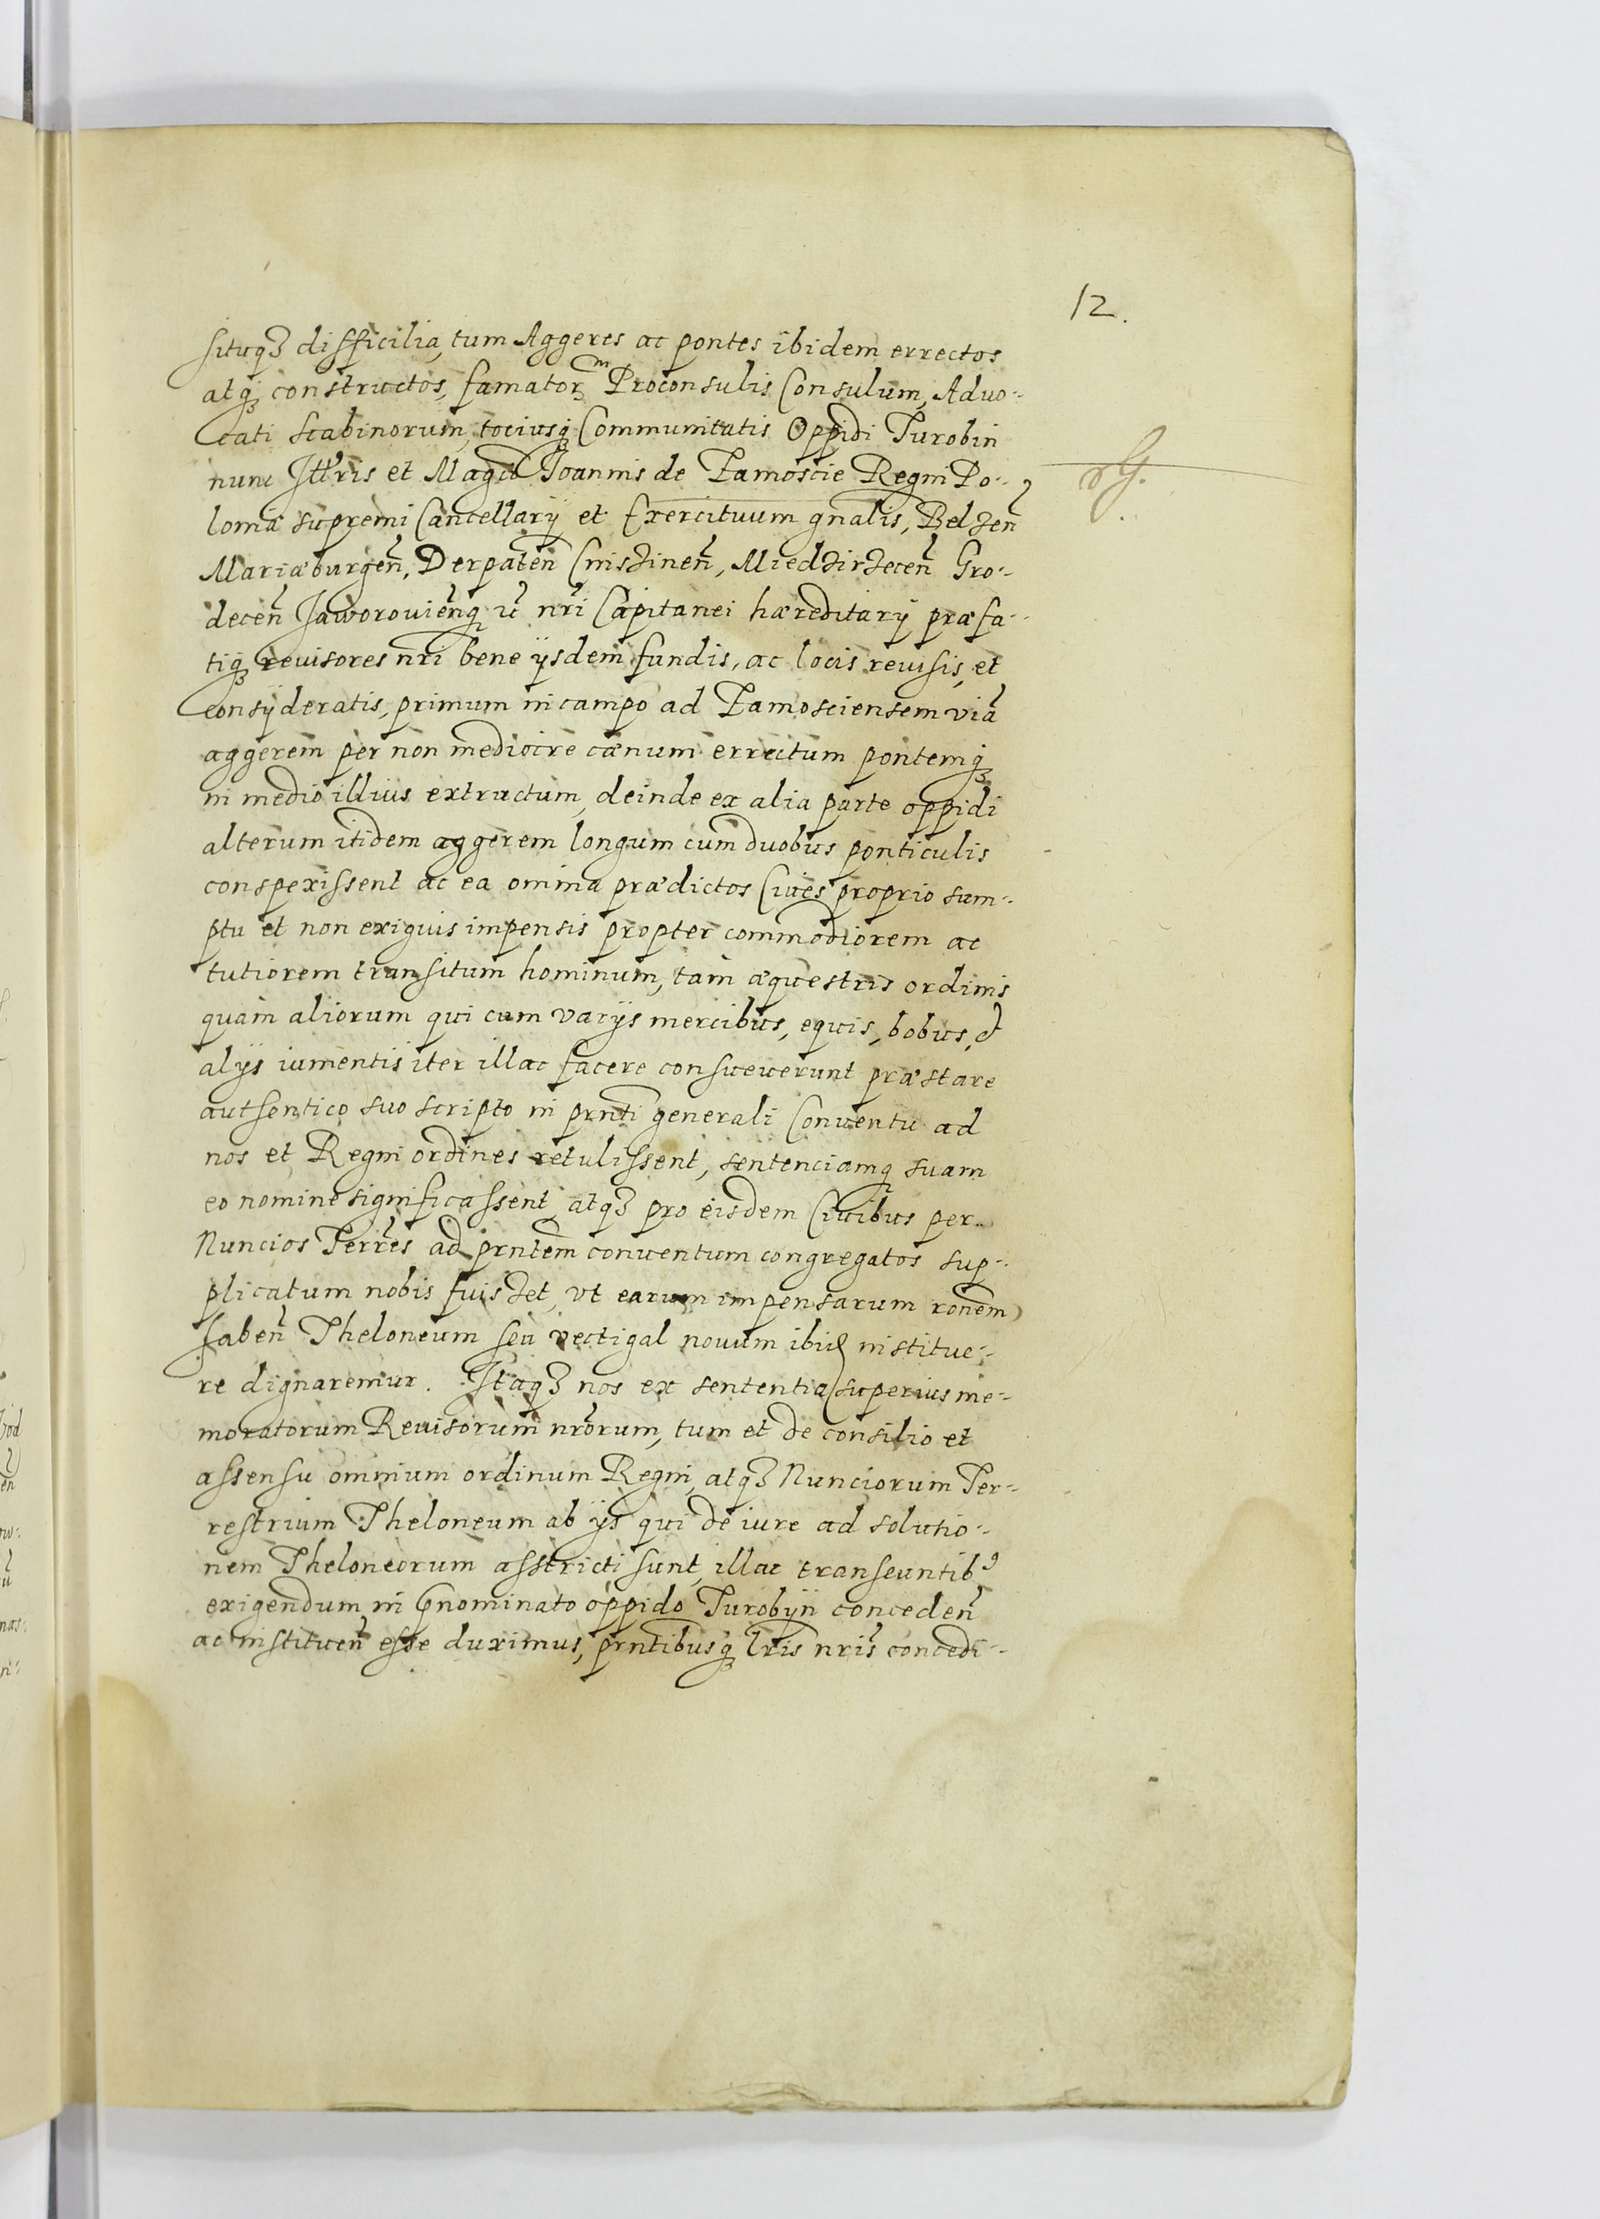 12.
situqꝫ difficilia, tum Aggeres ac pontes ibidem errectos
atqꝫ constructos, famatorm Proconsulis Consulum, Aduo-
cati Scabinorum, tociusqꝫ Communitatis Oppidi Turobin
nunc Illris et Magci Joannis de Zamoscie Regni Po-
loniæ supremi Cancellarÿ et Exercituum gnalis, Belzen
Mariæburgen, Derpaten Cnisзinen, Miedзirзecen Gro-
decen Jaworouienqꝫ nri Capitanei hæreditarÿ præfa-
tiqꝫ reuisores nri bene ÿsdem fundis, ac locis reuisis, et
consÿderatis, primum in campo ad Zamosciensem viã
aggerem per non mediocre cænum errectum pontemqꝫ
in medio illius extructum, deinde ex alia parte oppidi
alterum itidem aggerem longum cum duobus ponticulis
conspexissent ac ea omnia prædictos Ciues proprio sum-
ptu et non exiguis impensis propter commodiorem ac
tutiorem transitum hominum, tam æquestris ordinis
quàm aliorum qui cum varÿs mercibus, equis, bobus, et
alÿs iumentis iter illac facere consueuerunt præstare
authentico suo scripto in prnti generali Conuentu ad
nos et Regni ordines retulissent, sentenciamqꝫ suam
eo nomine significassent, atqꝫ pro eisdem Ciuibus per
Nuncios Terres ad prntem conuentum congregatos sup-
plicatum nobis fuisset, vt earum impensarum ronem
haben Theloneum seu vectigal nouum ibid institue-
re dignaremur. Itaqꝫ nos ex sententia superius me-
moratorum Reuisorum nrorum, tum et de consilio et
assensu omnium ordinum Regni, atqꝫ Nunciorum Ter-
restrium Theloneum ab ÿs qui de iure ad solutio-
nem Theloneorum asstricti sunt, illac transeuntib9
exigendum in Gnominato oppido Turobÿn conceden
ac instituen esse duximus, prntibusqꝫ lris nris concedi-